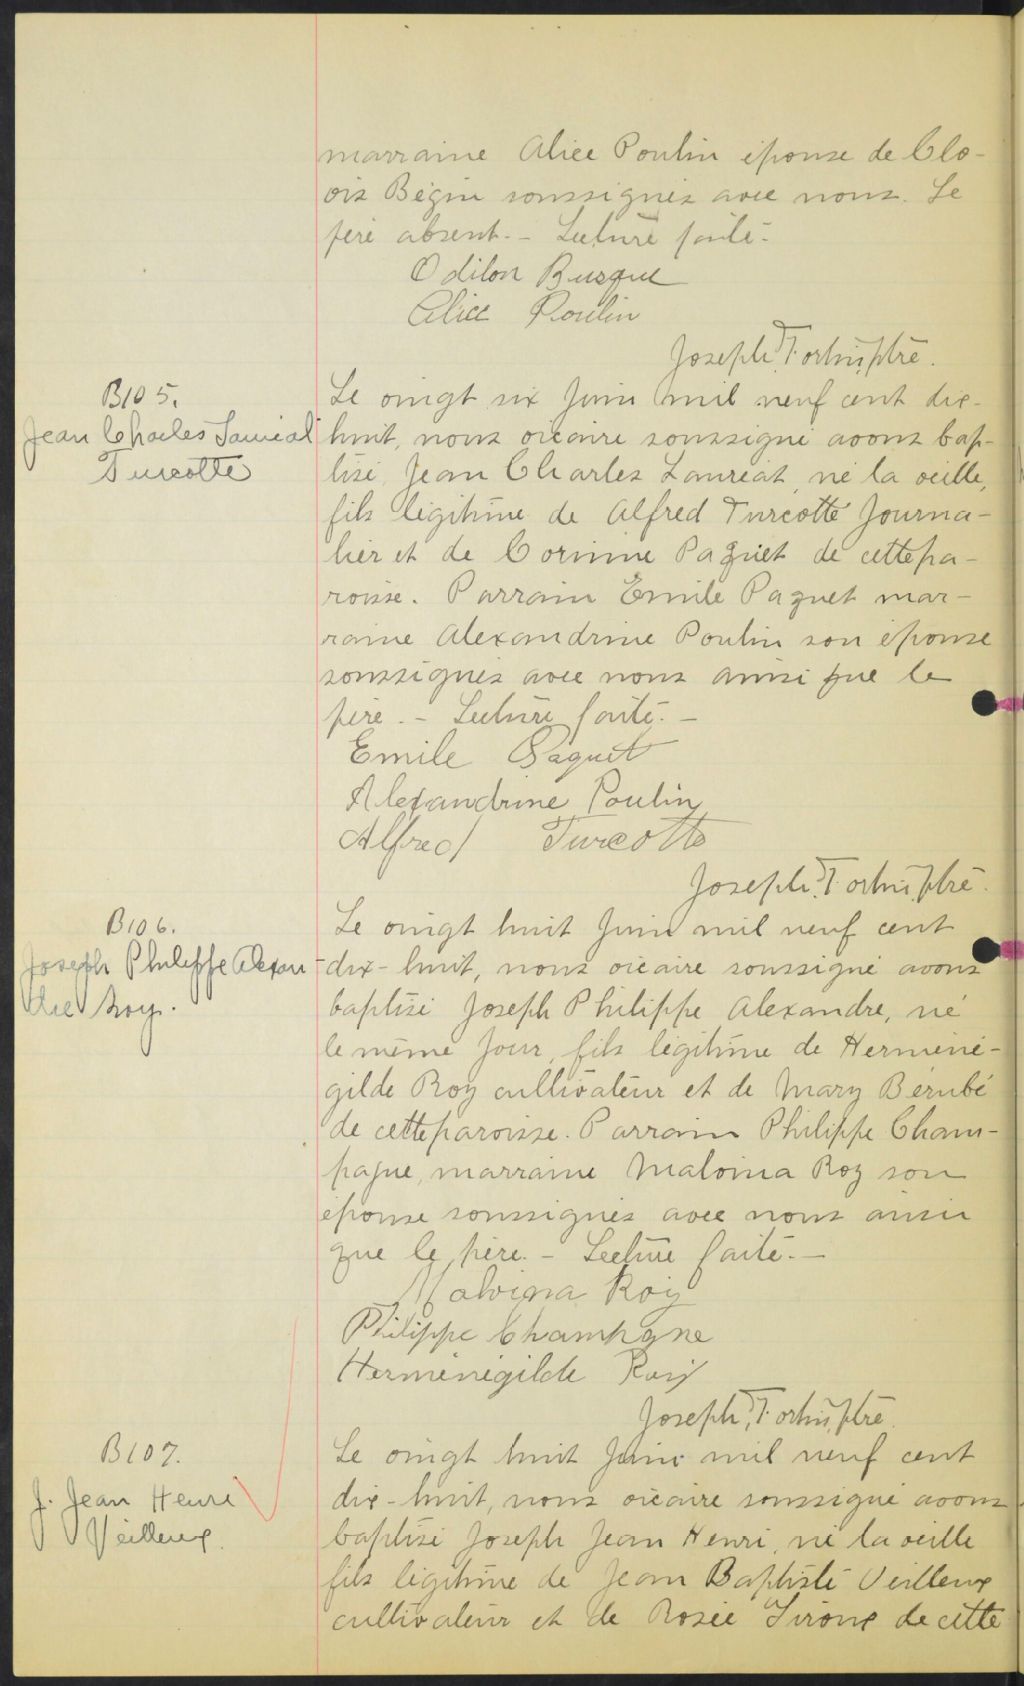 marraine Alice Poulin épouse de Clo-
vis Bégin soussignés avec nous. Le
père absent. - Lecture faite.
Odilon Busque
Alice Poulin
Joseph Fortin, ptre.
B105.
Jean Charles Lauréat
Turcotte
Le vingt six Juin mil neuf cent dix-
huit, nous vicaire soussigné avons bap-
tisé Jean Charles Lauréat, né la veille,
fils légitime de Alfred Turcotte Journa-
lier et de Corinne Paquet de cette pa-
roisse. Parrain Emile Paquet mar-
raine Alexandrine Poulin son épouse
soussignés avec nous ainsi que le
père. - Lecture faite. -
Emile Paquet
Alexandrine Poulin
Alfred Turcotte
Joseph Fortin, ptre.
B106.
Joseph Philippe Alexan-
dre Roy.
Le vingt huit Juin mil neuf cent
dix-huit, nous vicaire soussigné avons
baptisé Joseph Philippe Alexandre, né
le même Jour, fils légitime de Herméné-
gilde Roy cultivateur et de Mary Bérubé
de cette paroisse. Parrain Philippe Cham-
pagne, marraine Malvina Roy son
épouse soussignés avec nous ainsi
que le père. - Lecture faite. -
Malvina Roy
Philippe Champagne
Herménégilde Roy
Joseph Fortin, ptre.
B107.
J. Jean Henri
Veilleux.
Le vingt huit Juin mil neuf cent
dix-huit, nous vicaire soussigné avons
baptisé Joseph Jean Henri, né la veille
fils légitime de Jean Baptiste Veilleux
cultivateur et de Rosée Giroux de cette